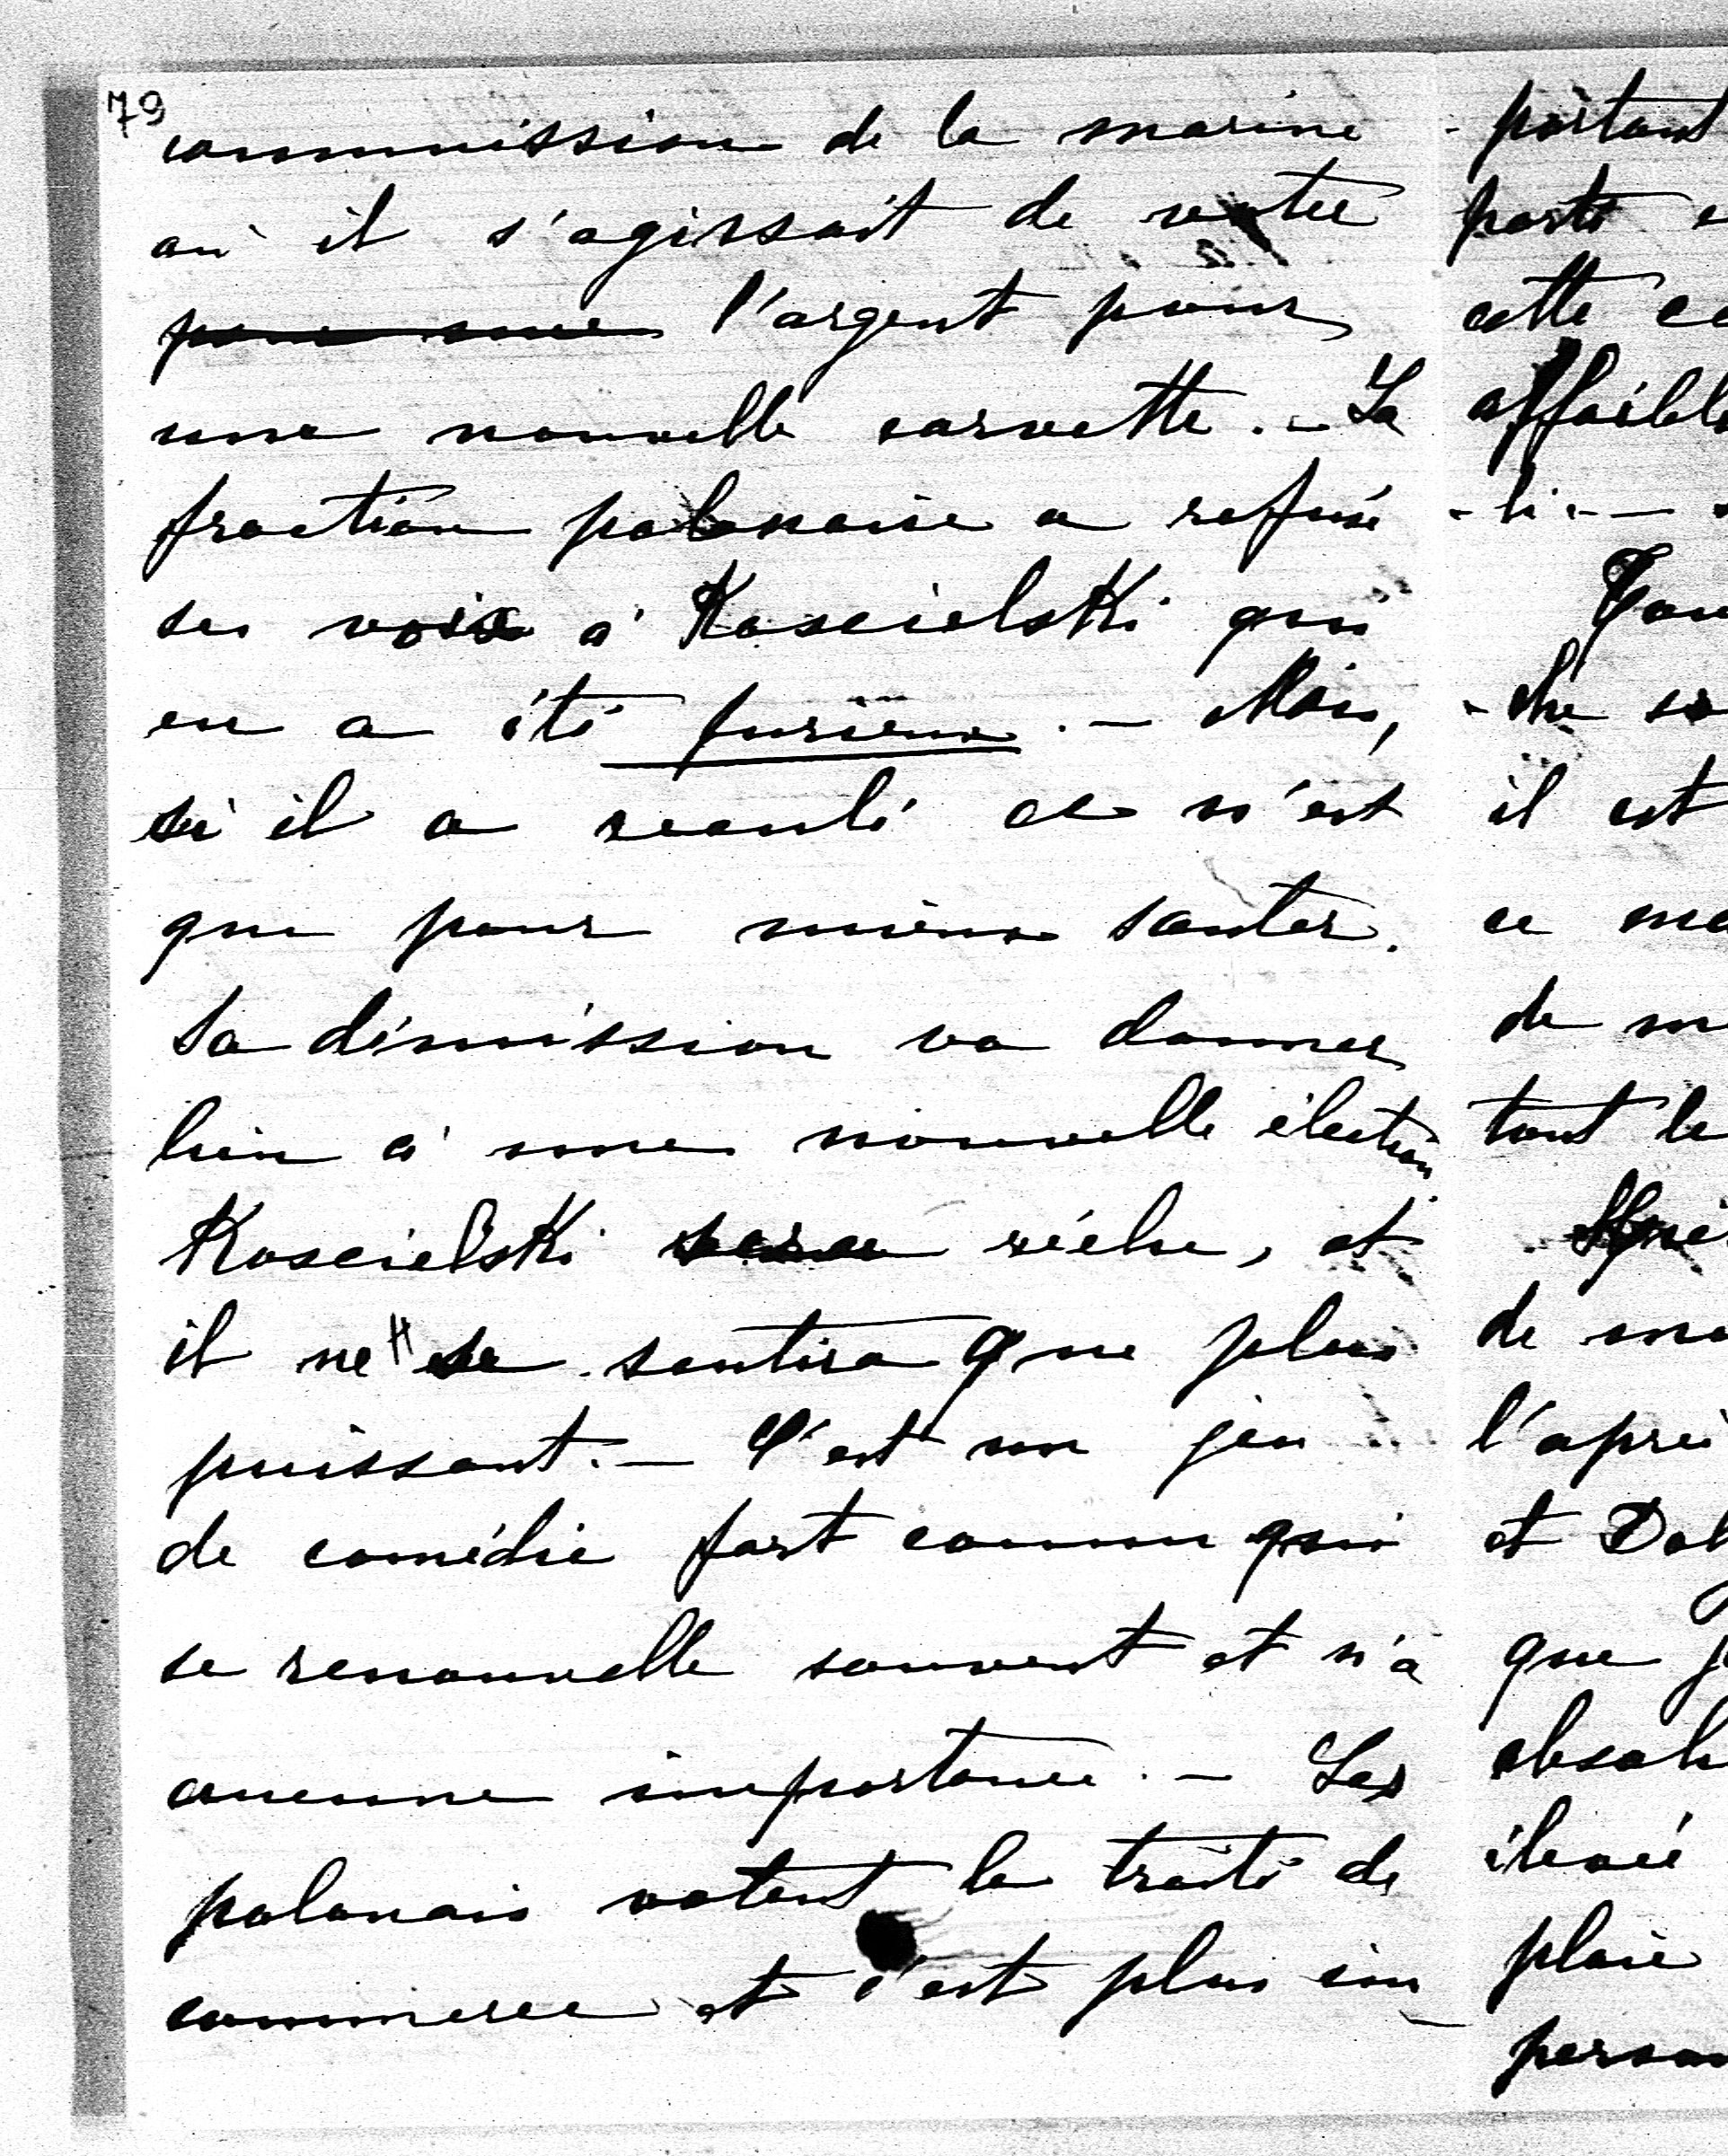 79
commission de la marine
où il s'agissait de voter
pour une l'argent pour
une nouvelle corvette. - La
fraction polonaise a refusé
ses voix à Koscielski qui
en a été furieux. - Mais,
si il a reculé ce n'est
que pour mieux sauter.
Sa démission va donner
lieu à une nouvelle élection.
Koscielski sera réélu, et
il ne se sentira que plus
puissant. - C'est un jeu
de comédie fort connu qui
se renouvelle souvent et n'a
aucune importance. - Les
polonais votent le traité de
commerce et c'est plus im-
-portant
porte
cette
affaibli
-li --
-che
il est
ce
de
tout le
de
l'après
et
que
élevé